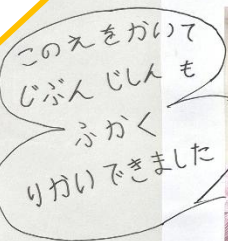 このえをかいて
じぶん じしん も
ふかく
りかいできました